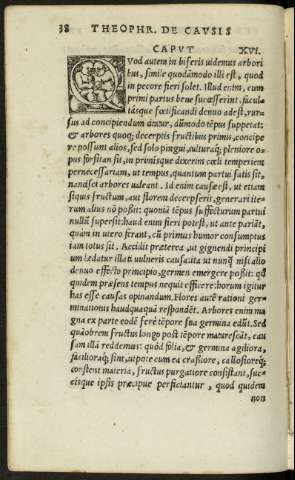 38 THEOPHR. DE CAVSIS
CAPVT XVI.
QVod autem in biferis uidemus arbori
bus, simile quodāmodo illi est, quod
in pecore fieri solet. Illud enim, cum
primi partus bene successerint, facul
tásque fœtificandi denuo adest, rur-
sus ad concipiendum ducitur, dūmodo tēpus suppetat:
& arbores quoq; decerptis fructibus primis, concipe
re possunt alios, sed solo pingui, culturaq; pleniore o-
pus forsitan sit, in primisque dixerim cœli temperiem
pernecessariam, ut tempus, quantum partui satis sit,
nancisci arbores ualeant. Id enim causæ est, ut etiam
siquis fructum, aut florem decerpseris, generari ite-
rum alius nō possit: quoniā tēpus suffecturum partui
nullū superest: haud enim fieri potest, ut ante pariāt,
quàm in utero ferant, cū primus humor consumptus
iam totus sit. Accidit præterea, ut gignendi principi
um lædatur illati uulneris causa: ita ut nunq̃ inscalio
denuo effecto principio, germen emergere possit: qđ
quidem præsens tempus nequit efficere: horum igitur
has esse causas opinandum. Flores autē rationi ger-
minationis haudquaquā respondēt. Arbores enim ma
gna ex parte eodē ferè tēpore sua germina edūt. Sed
quāobrem fructus longo post tēpore maturescāt, cau
sam illā reddemus: quòd folia, & germina agiliora,
facilioraq; sint, utpote cum ea crassiore, callosioreq;
constent materia, fructus purgatiore consistant, suc-
cisque ipsis præcipue perficiantur, quod quidem
non